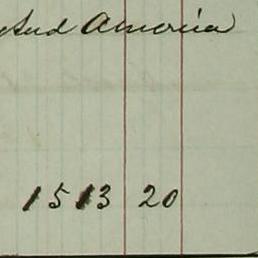 And America
1513 20